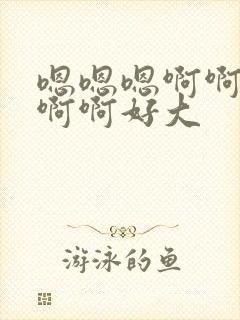 嗯嗯嗯啊啊
啊啊好大
游泳的鱼